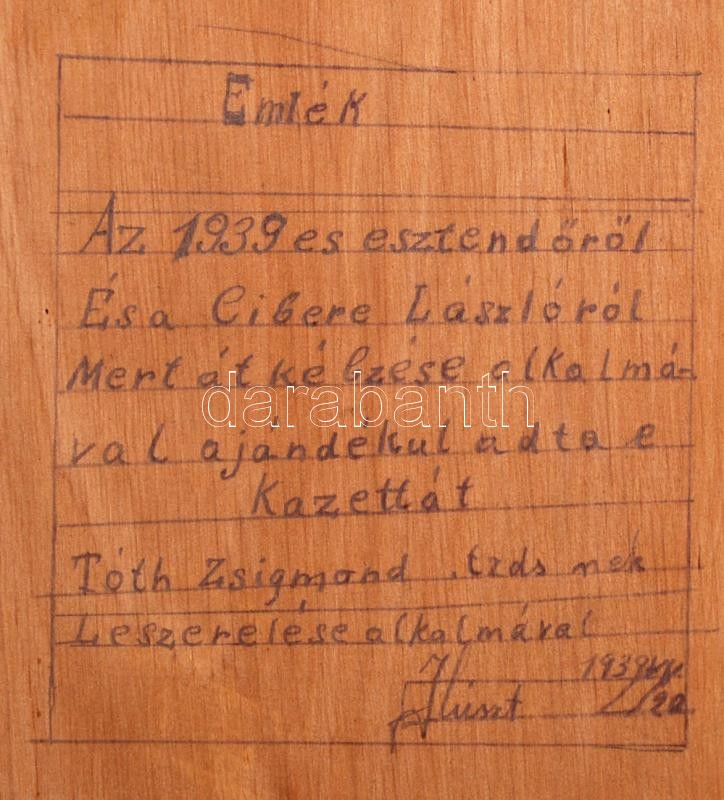 Emlék
Az 1939 es esztendőről
És a Cibere Lászlóról
Mert át ké bzése alkalmá-
darabanth
val ajándekul adta e
Kazettát
Tóth Zsigmond .tzds nek
Leszerelése alkalmával
1939
Huszt